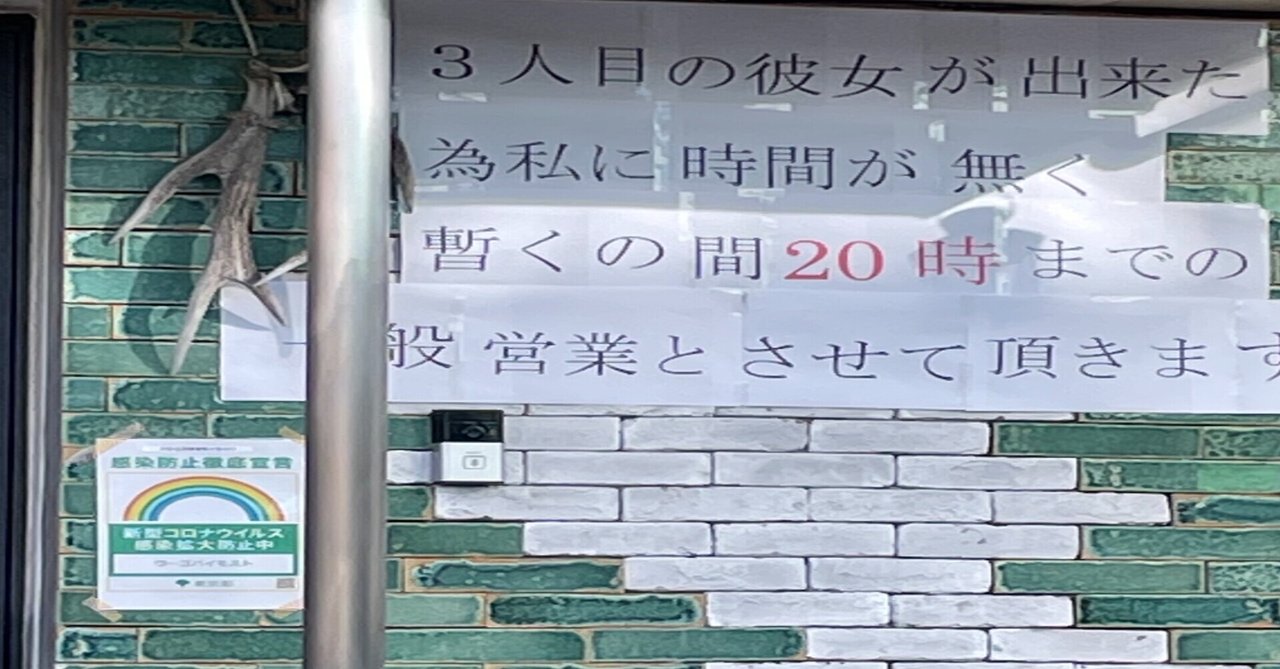 3人目の彼女が出来た
為私に時間が無く
暫くの間20時までの
一般営業とさせて頂きます
感染防止徹底宣言
新型コロナウイルス
感染拡大防止中
東京都